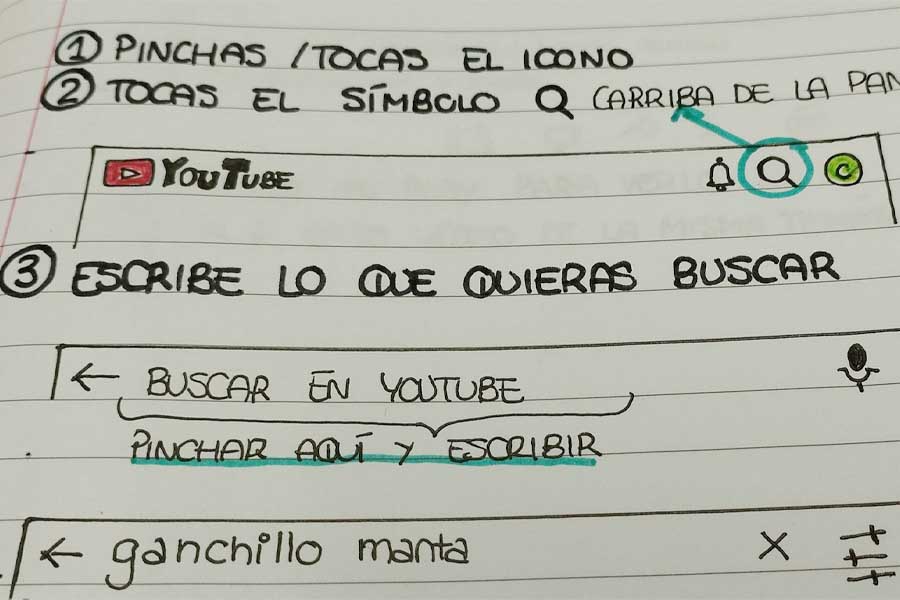 ① PINCHAS / TOCAS EL ICONO
② TOCAS EL SÍMBOLO (ARRIBA DE LA
YOUTUBE C
③ ESCRIBE LO QUE QUIERAS BUSCAR
← BUSCAR EN YOUTUBE
PINCHAR AQUÍ Y ESCRIBIR
← ganchillo manta X